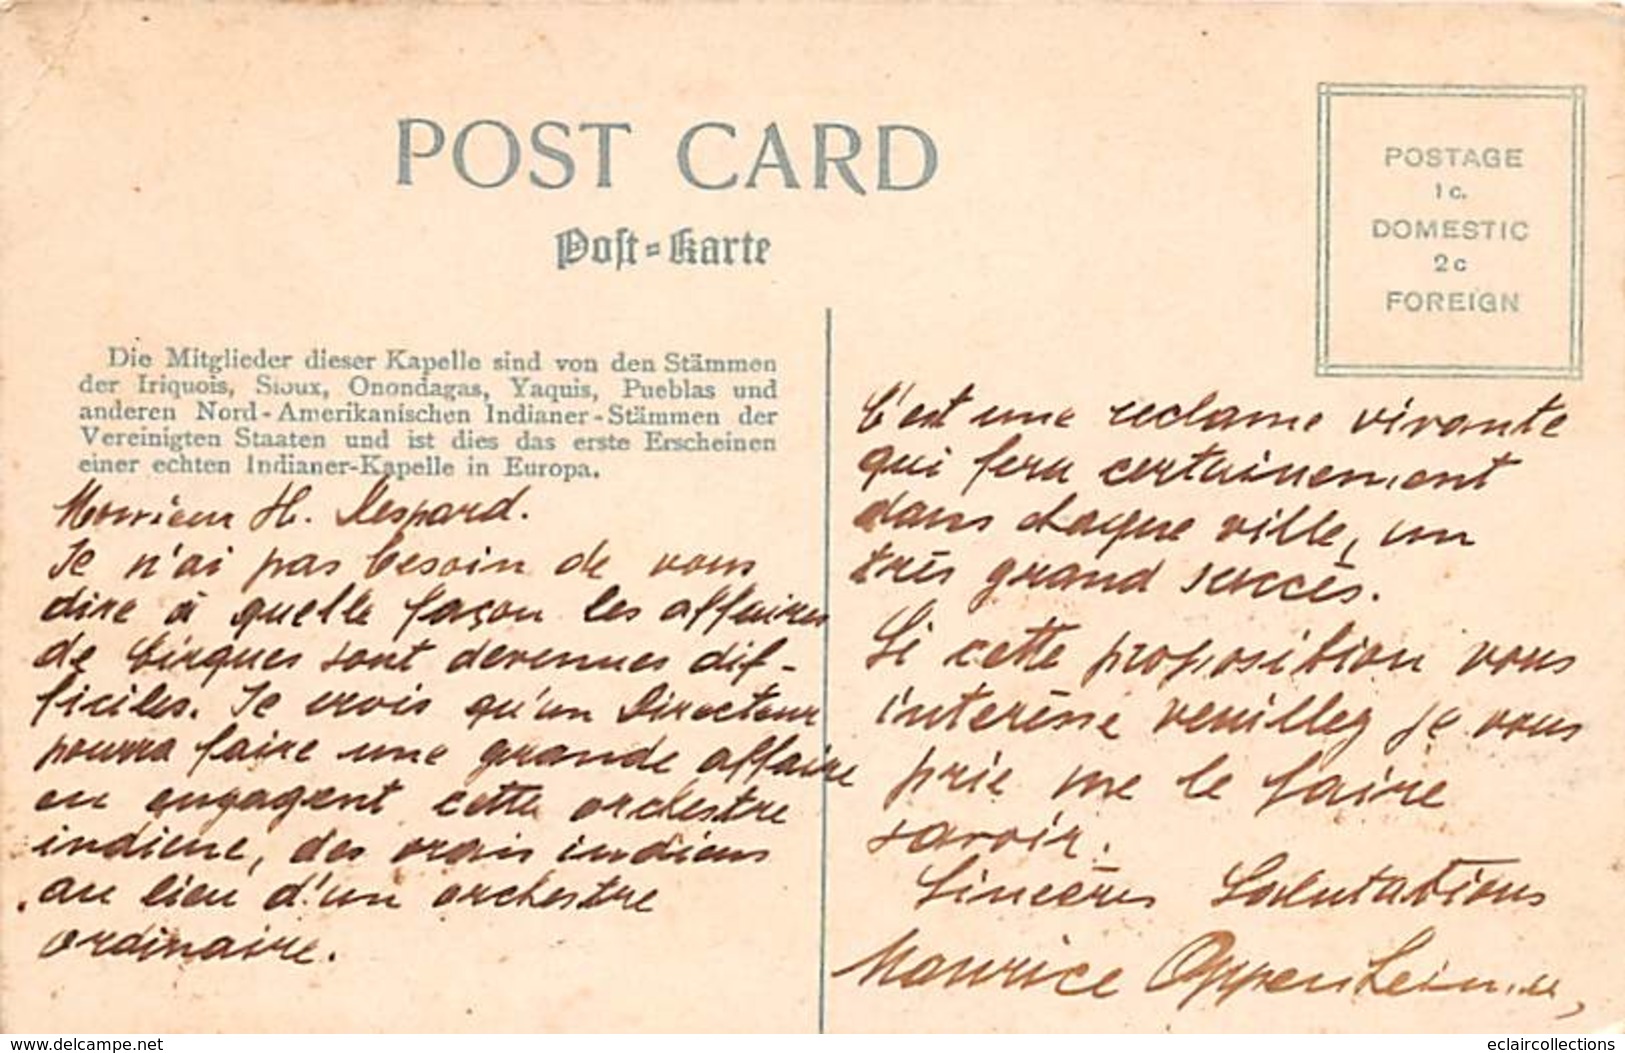 POST CARD
Post=Karte
POSTAGE
1c.
DOMESTIC
2c
FOREIGN
Die Mitglieder dieser Kapelle sind von den Stämmen
der Iriquois, Sioux, Onondagas, Yaquis, Pueblas und
anderen Nord-Amerikanischen Indianer-Stämmen der
Vereinigten Staaten und ist dies das erste Erscheinen
einer echten Indianer-Kapelle in Europa.
Monsieur H. Despard.
Je n'ai pas besoin de vous
dire à quelle façon les affaires
de Cirques sont devenues dif-
ficiles. Je crois qu'un Directeur
pourra faire une grande affaire
en engagent cette orchestre
indiene, des vrais indiens
au lieu d'un orchestre
ordinaire.
C'est une reclame vivante
qui fera certainement
dans chaque ville, un
très grand succès.
Si cette proposition vous
interésse veuillez je vous
prie me le faire
savoir.
Sincères Salutations
Maurice Oppenheimer,
www.delcampe.net
eclaircollections